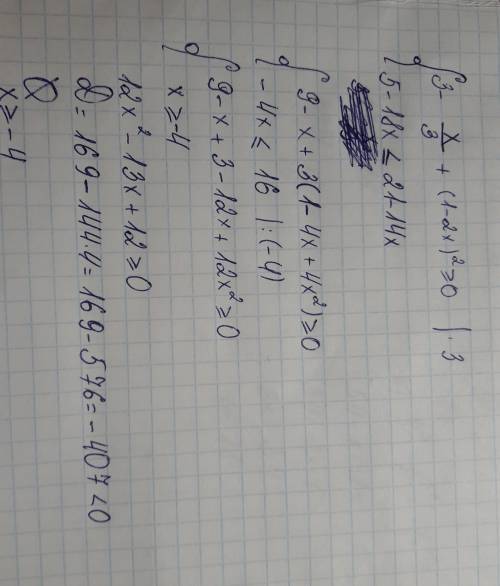 { 3 - x/3 + (1-2x)² ≥ 0 | · 3
{ 5 - 18x ≤ 21-14x
{ 9 - x + 3(1-4x+4x²) ≥ 0
{ - 4x ≤ 16 | : (-4)
{ 9 - x + 3 - 12x + 12x² ≥ 0
{ x ≥ -4
12x² - 13x + 12 ≥ 0
D = 169 - 144·4 = 169 - 576 = - 407 < 0
x ≥ -4